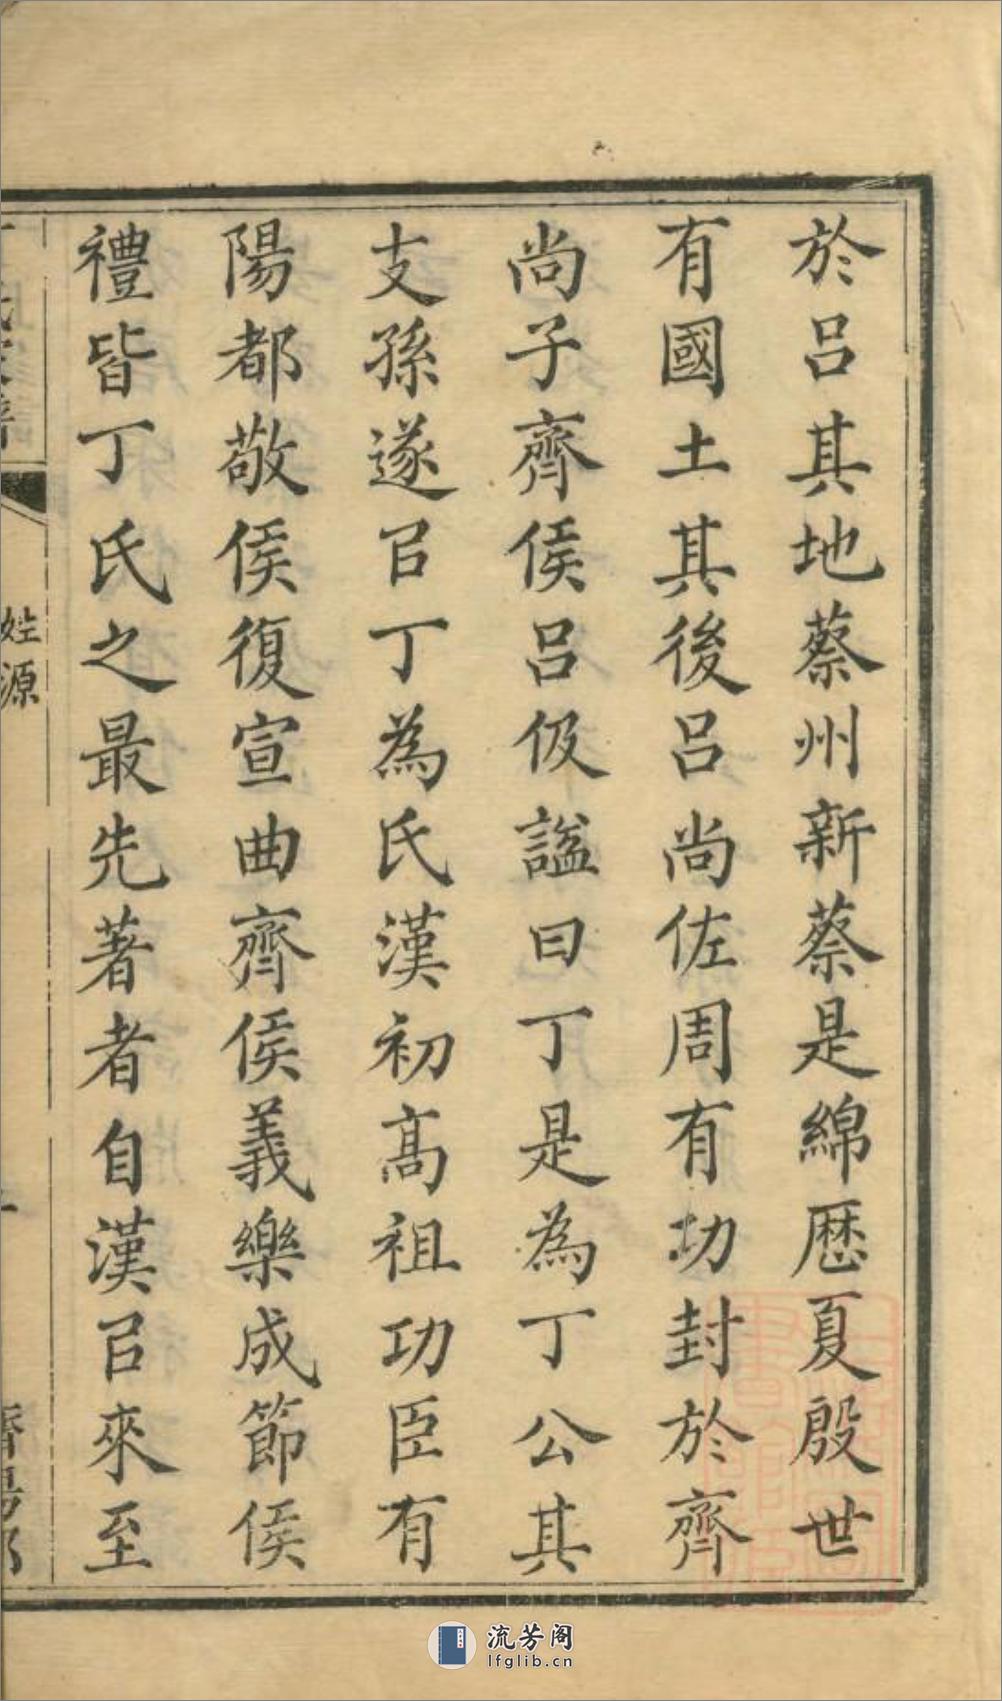 於呂其地蔡州新蔡是綿歷夏殷世
有國土其後呂尚佐周有功封於齊
尚子齊侯呂伋謚曰丁是為丁公其
支孫遂㠯丁為氏漢初高祖功臣有
陽都敬侯復宣曲齊侯義樂成節侯
禮皆丁氏之最先著者自漢㠯來至
姓源
流芳阁
lfglib.cn